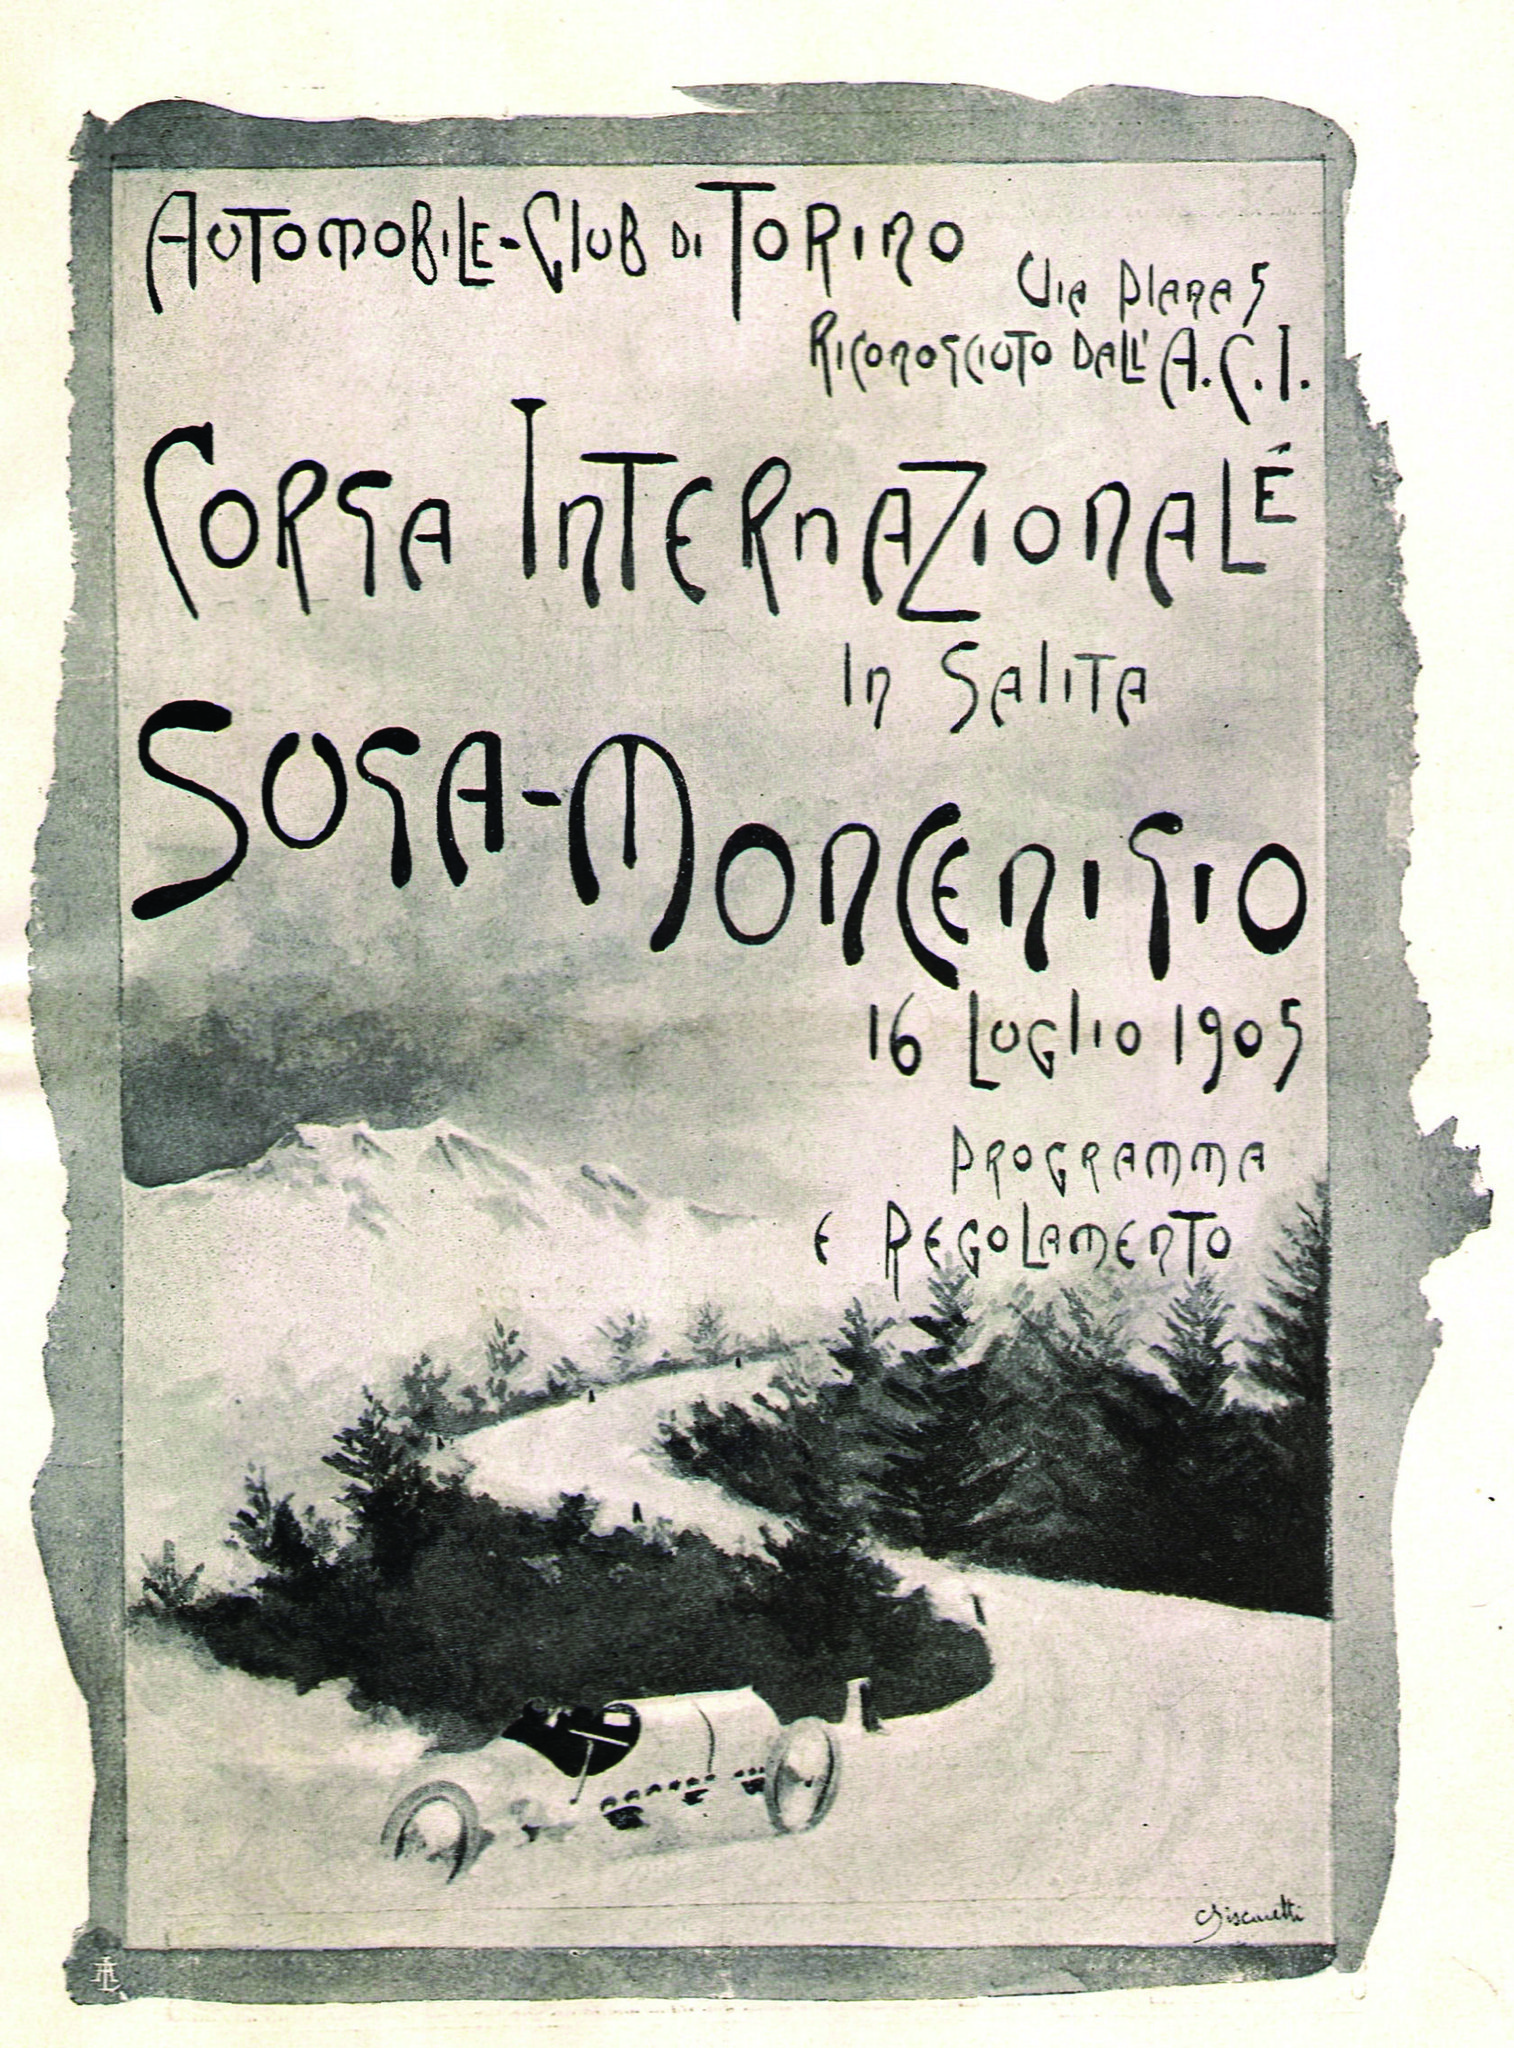 Automobile-Club di Torino
Via Plana 5
Riconosciuto dall' A.C.I.
Corsa Internazionale
In Salita
Susa-Moncenisio
16 Luglio 1905
Programma
e Regolamento
Biscaretti